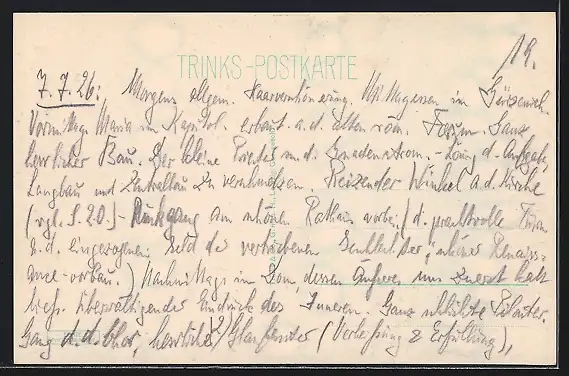 TRINKS-POSTKARTE
19.
7.7.26: Morgens allgem. Haarverschönerung. Mittagessen im Gürzenich.
Vormittag Maria im Kapitol. erbaut a. d. alten röm. Forum. Ganz
herrlicher Bau. Der kleine Paradies m. d. Gnadenstrom. - Lösung d. Aufgabe,
Langbau und Zentralbau zu verschmelzen. Reizender Winkel a. d. Kirche
(vgl. S. 20.) - Rückgang am schönen Rathaus vorbei (d. prachtvolle Turm
m. d. eingezogenen Geld der vertriebenen Geschlechter, schöner Renaiss-
ance-vorbau.) Nachmittags im Dom dessen Äußeres uns zuerst kalt
ließ. Überwältigender Eindruck des Inneren. Ganz schlichte
gang d. d. Chor, herrliche Glasfenster (Verheißung & Erfüllung),